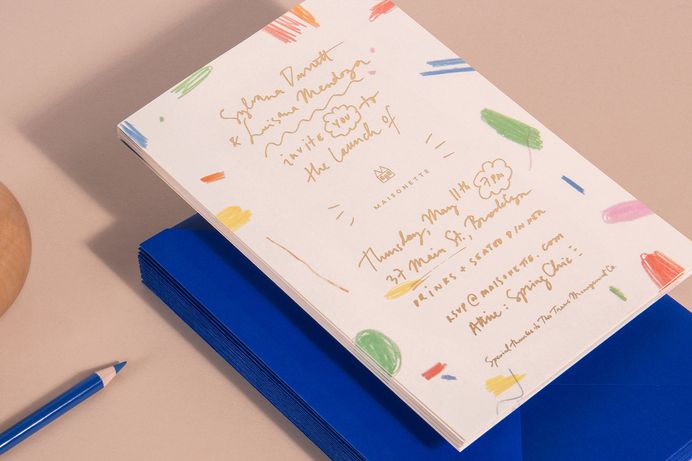 Sylvana Durrett
& Luisana Mendoza
invite YOU to
the launch of
MAISONETTE
Thursday, May 11th 7PM
37 Main St., Brooklyn
DRINKS + SEATED DINNER
RSVP@MAISONETTE.COM
Attire: Spring Chic
Special thanks to The Trust Management Co.